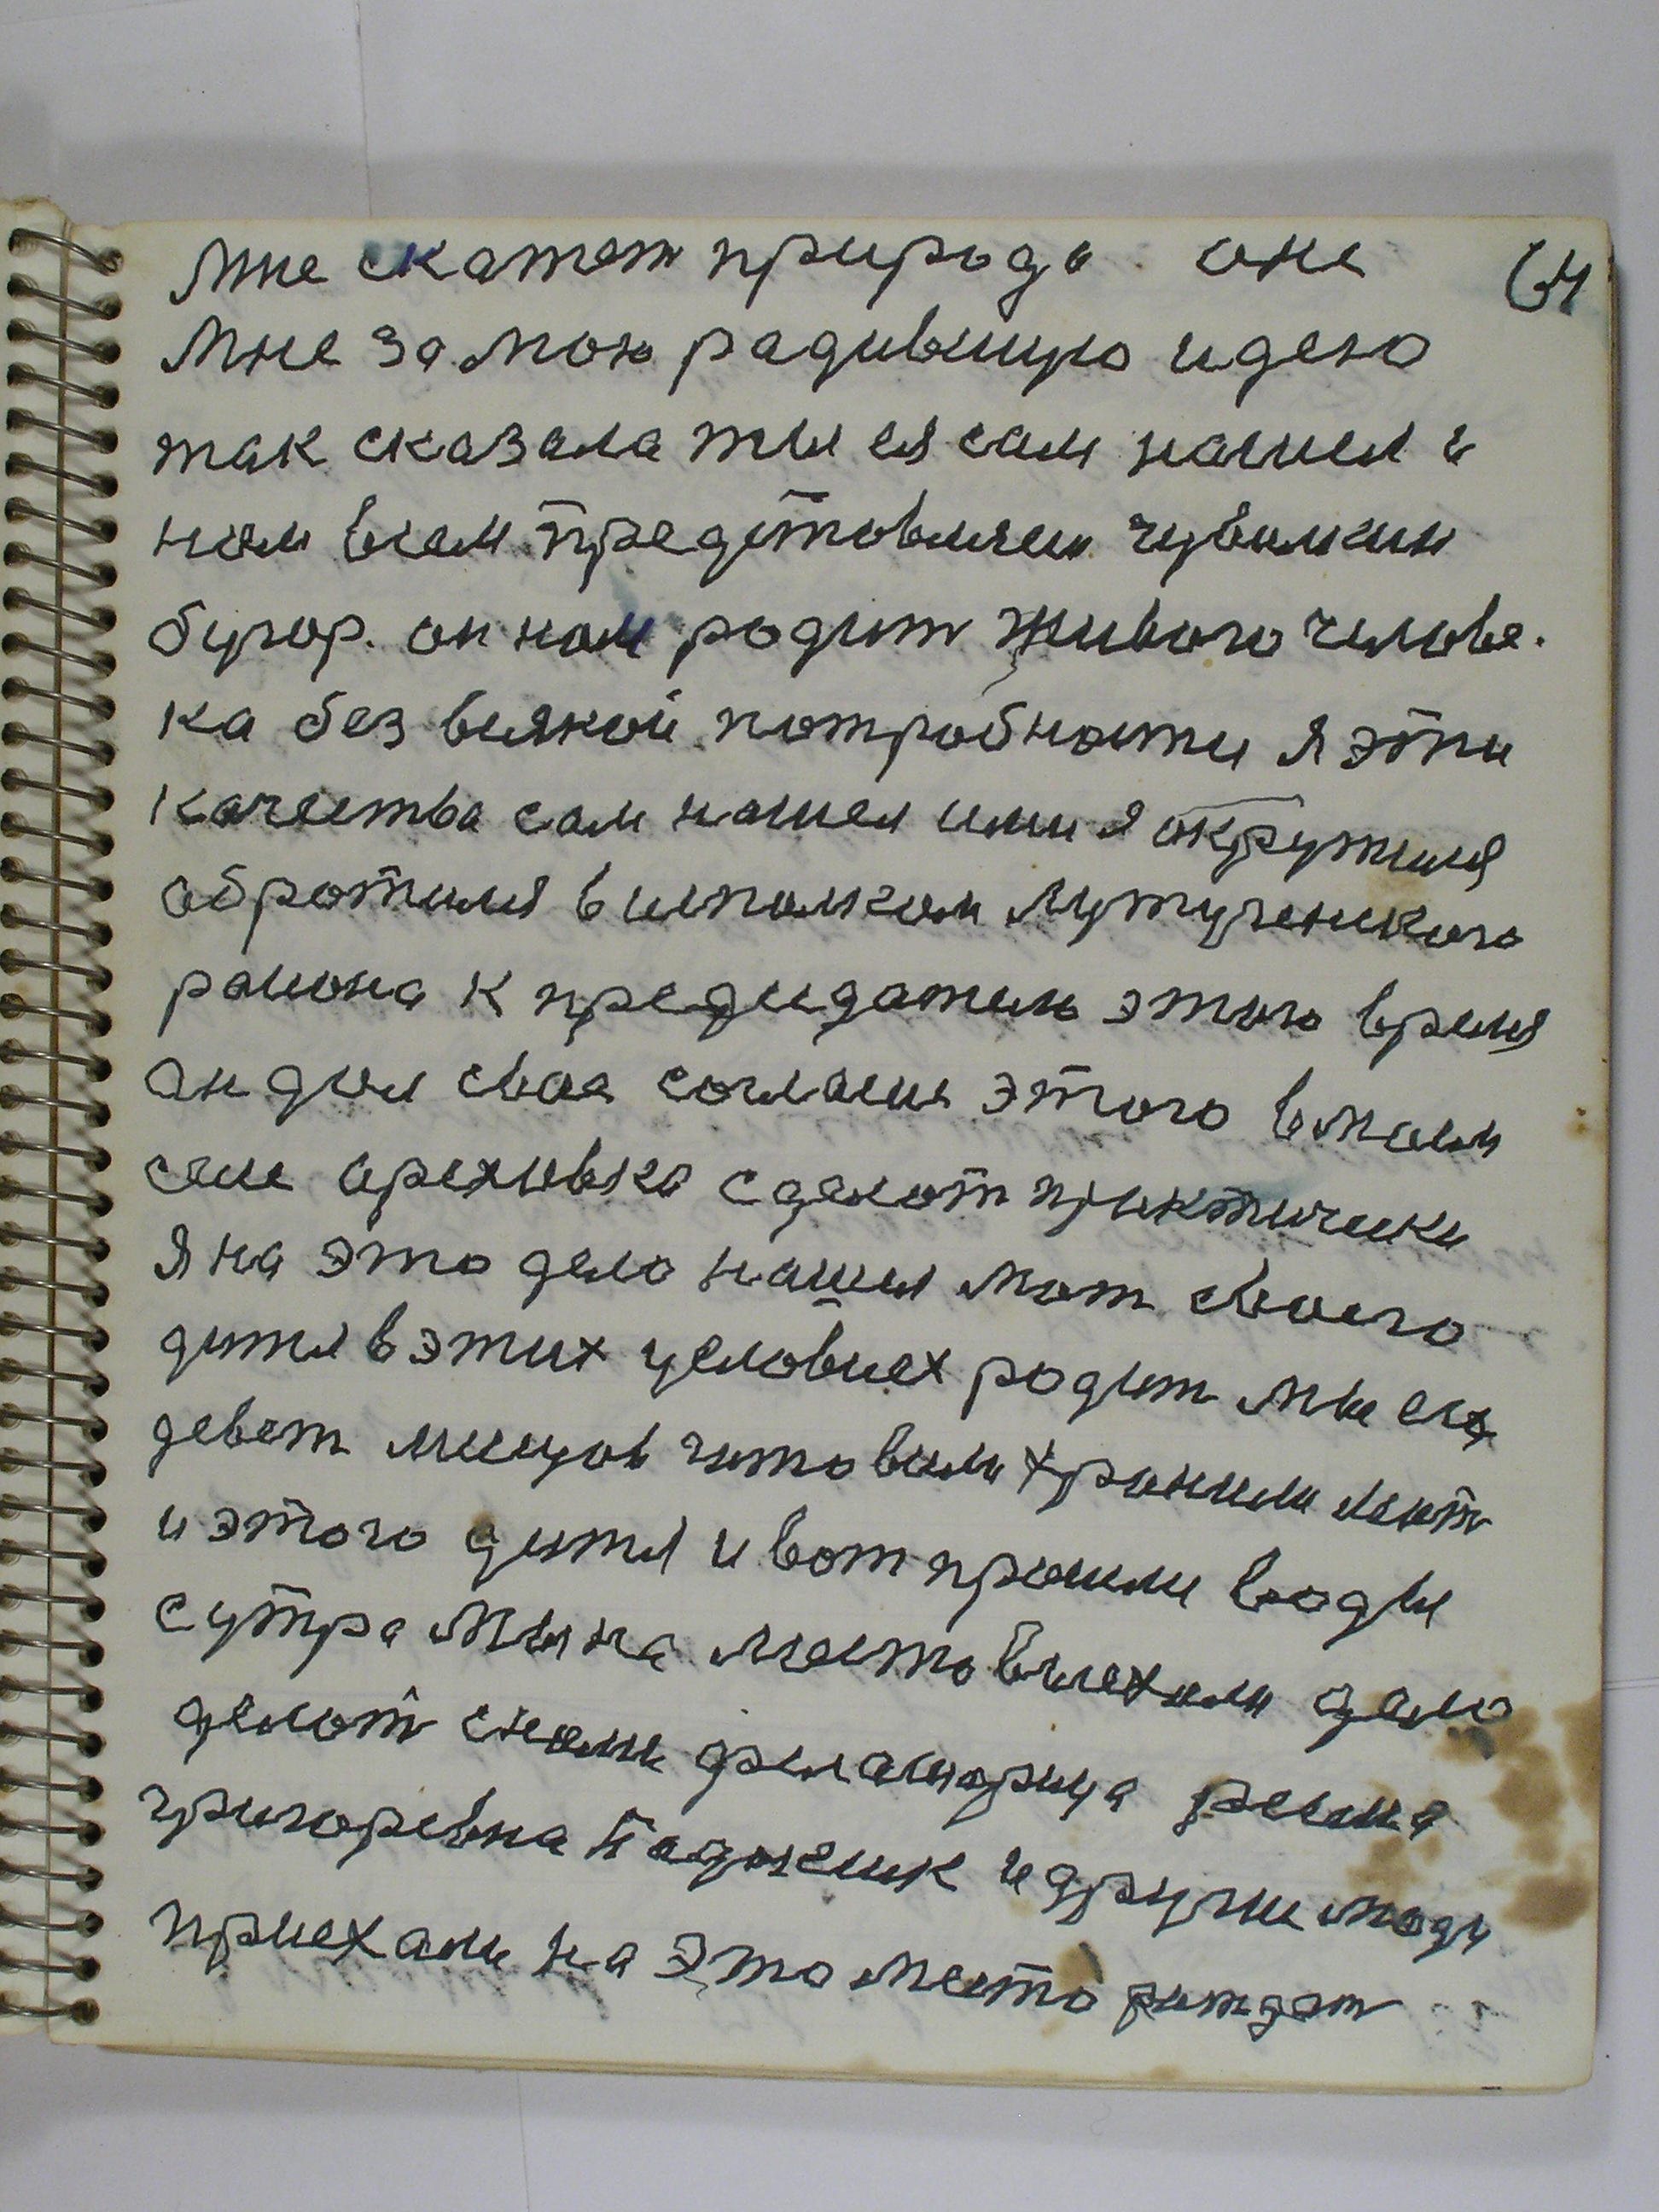 мне скажет природа она 64
мне за мою радившую идею
так сказала ты ея сам нашел и
нам всем представляеш чувилкин
бугор. он нам родит живого челове.
ка без всякой потробности я эти
качества сам нашел ими я окружился
обротился в исполком Лутугинского
раиона к предидателю этого время
он дал свое согласие этого в моем
селе ореховка сделот практически
я на это дело нашел мат своего
дитя в этих условиех родит мы ея
девет месецов хранили мат
и этого дитя и вот прошли воды
сутра мы на место выехали дело
делот снами
григоревна и други люди
приехали на это место рождат